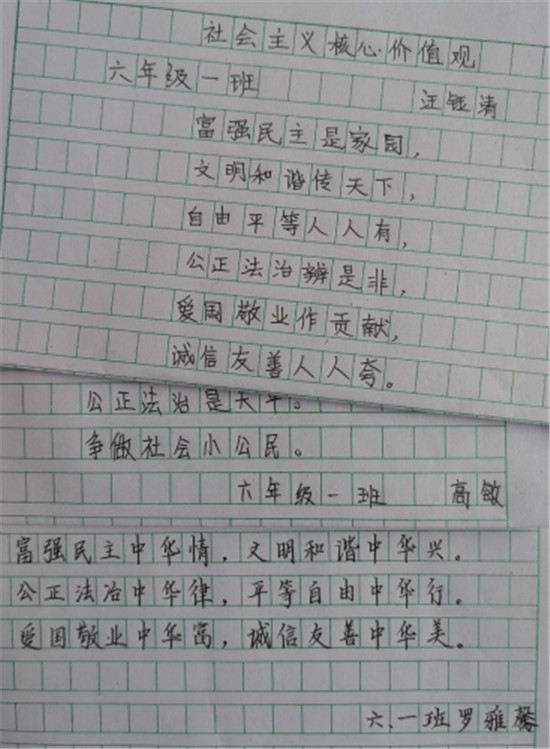 社会主义核心价值观
六年级一班 汪钰清
富强民主是家园，
文明和谐传天下，
自由平等人人有，
公正法治辨是非，
爱国敬业作贡献，
诚信友善人人夸。
公正法治是天平。
争做社会小公民。
六年级一班 高敏
富强民主中华情，文明和谐中华兴。
公正法治中华律，平等自由中华行。
爱国敬业中华富，诚信友善中华美。
六.一班罗雅馨